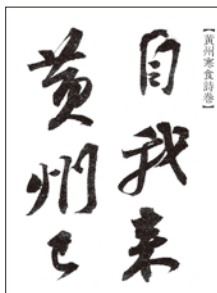 【黃州寒食詩卷】
自我来
黄州已